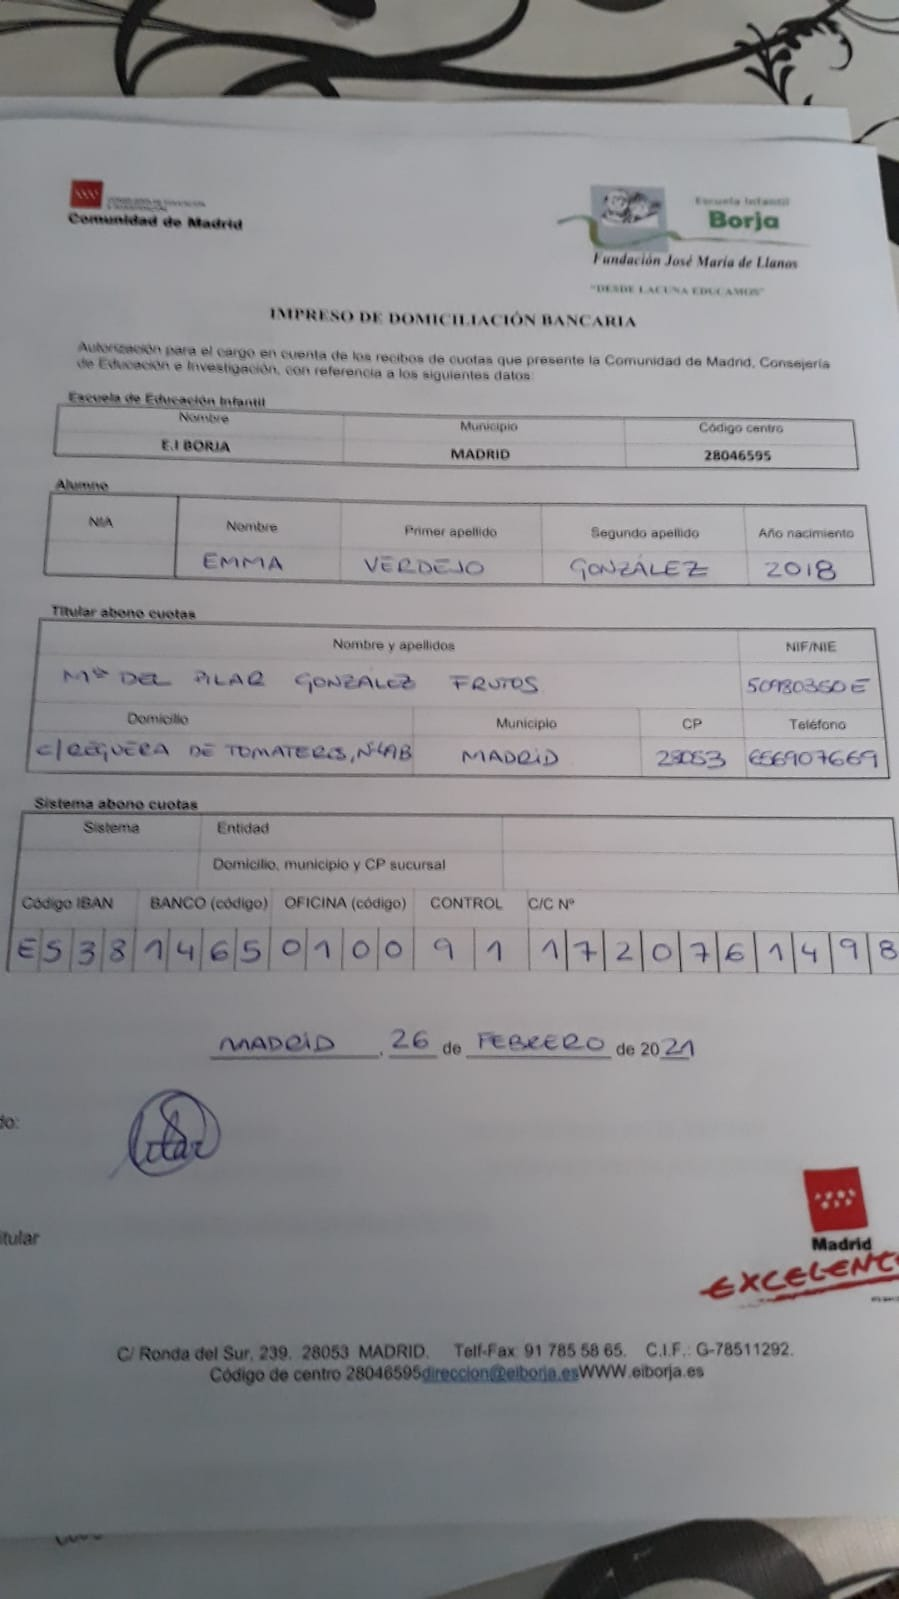 Comunidad de Madrid
Escuela Infantil
Borja
Fundación José María de Llanos
"DESDE LACUNA EDUCAMOS"
IMPRESO DE DOMICILIACIÓN BANCARIA
Autorización para el cargo en cuenta de los recibos de cuotas que presente la Comunidad de Madrid, Consejería
de Educación e Investigación, con referencia a los siguientes datos:
Escuela de Educación Infantil
Nombre Municipio Código centro
E.I BORJA MADRID 28046595
Alumno
NIA Nombre Primer apellido Segundo apellido Año nacimiento
EMMA VERDEJO GONZÁLEZ 2018
Titular abono cuotas
Nombre y apellidos NIF/NIE
Mª DEL PILAR GONZÁLEZ FRUTOS 50980350E
Domicilio Municipio CP Teléfono
C/REGUERA DE TOMATEROS, MADRID 28053 656907669
Sistema abono cuotas
Sistema Entidad
Domicilio, municipio y CP sucursal
Código IBAN BANCO (código) OFICINA (código) CONTROL C/C Nº
ES38 1465 0100 91 1720761498
MADRID, 26 de FEBRERO de 2021
do:
Pilar
itular
Madrid
EXCELENT
C/ Ronda del Sur, 239. 28053 MADRID. Telf-Fax 91 785 58 65. C.I.F.: G-78511292.
Código de centro 28046595direccion@eiborja.esWWW.eiborja.es